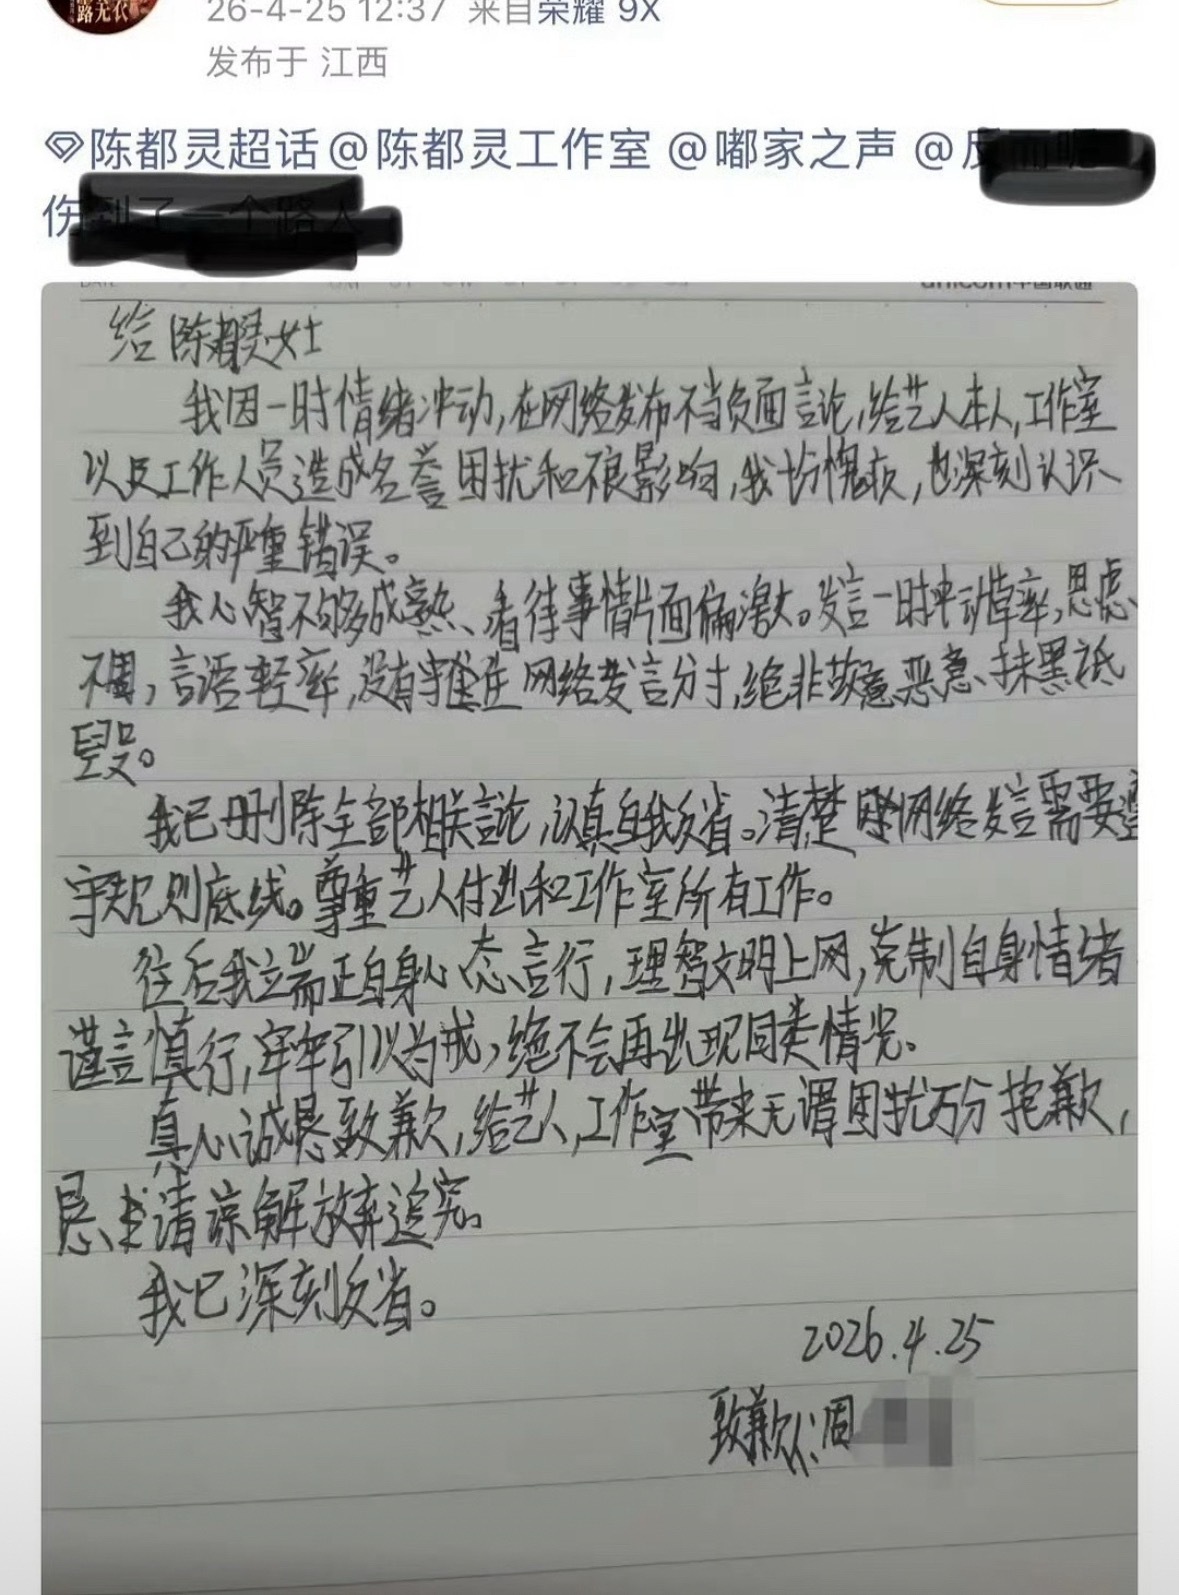 露无衣
26-4-25 12:37 来自荣耀 9X
发布于 江西
陈都灵超话@陈都灵工作室 @嘟家之声 @
伤到了一个路人
unicom中国联通
给陈都灵女士
我因一时情绪冲动,在网络发布不当负面言论,给艺人本人,工作室
以及工作人员造成名誉困扰和不良影响,我十分愧疚,也深刻认识
到自己的严重错误。
我心智不够成熟、看待事情片面偏激。发言一时冲动草率,思虑
不周,言语轻率,没有掌握住网络发言分寸,绝非故意恶意抹黑诋
毁。
我已删除全部相关言论,认真自我反省。清楚网络发言需要遵
守规则底线。尊重艺人付出和工作室所有工作。
往后我立端正自身心态言行,理智文明上网,克制自身情绪
谨言慎行,牢牢引以为戒,绝不会再出现同类情况。
真心诚恳致歉,给艺人,工作室带来无谓困扰万分抱歉,
恳求请谅解放弃追究。
我已深刻反省。
2026.4.25
致歉人:周